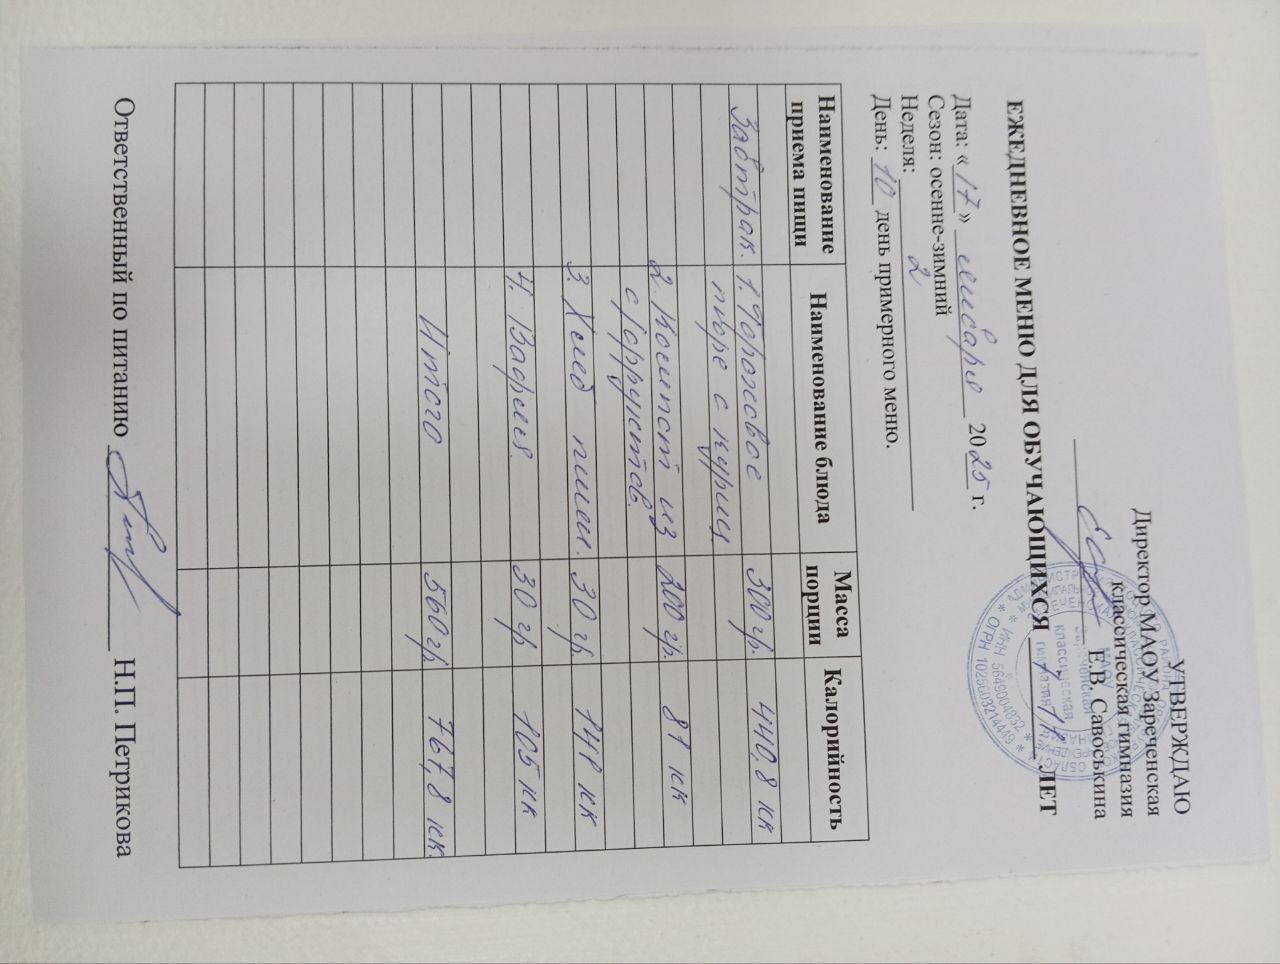 УТВЕРЖДАЮ
Директор МАОУ Зареченская
классическая гимназия
Е.В. Савоськина
ЕЖЕДНЕВНОЕ МЕНЮ ДЛЯ ОБУЧАЮЩИХСЯ ЛЕТ
Дата: «17» января 2025 г.
Сезон: осенне-зимний
Неделя: 2
День: 10 день примерного меню.
Наименование приема пищи Наименование блюда Масса порции Калорийность
Завтрак. 1. Гороховое 300 гр. 440,8 кк
пюре с куриц.
2. Компот из 200 гр. 81 кк
с/фруктов.
3. Хлеб пшен. 30 гр. 141 кк
4. Вафля. 30 гр 105 кк
Итого 560 гр 767,8 кк.
Ответственный по питанию Н.П. Петрикова
ИНН 5649004832
ОГРН 1025603214449